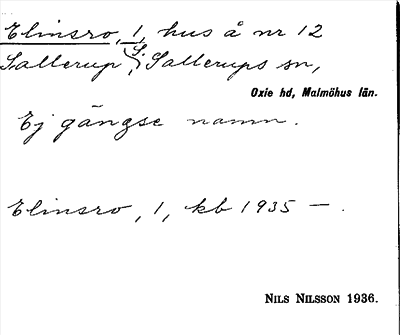 Elinsro, 1, hus å nr 12
Sallerup, S. Sallerups sn,
Oxie hd, Malmöhus län.
Ej gängse namn.
Elinsro, 1, kb 1935 — .
NILS NILSSON 1936.